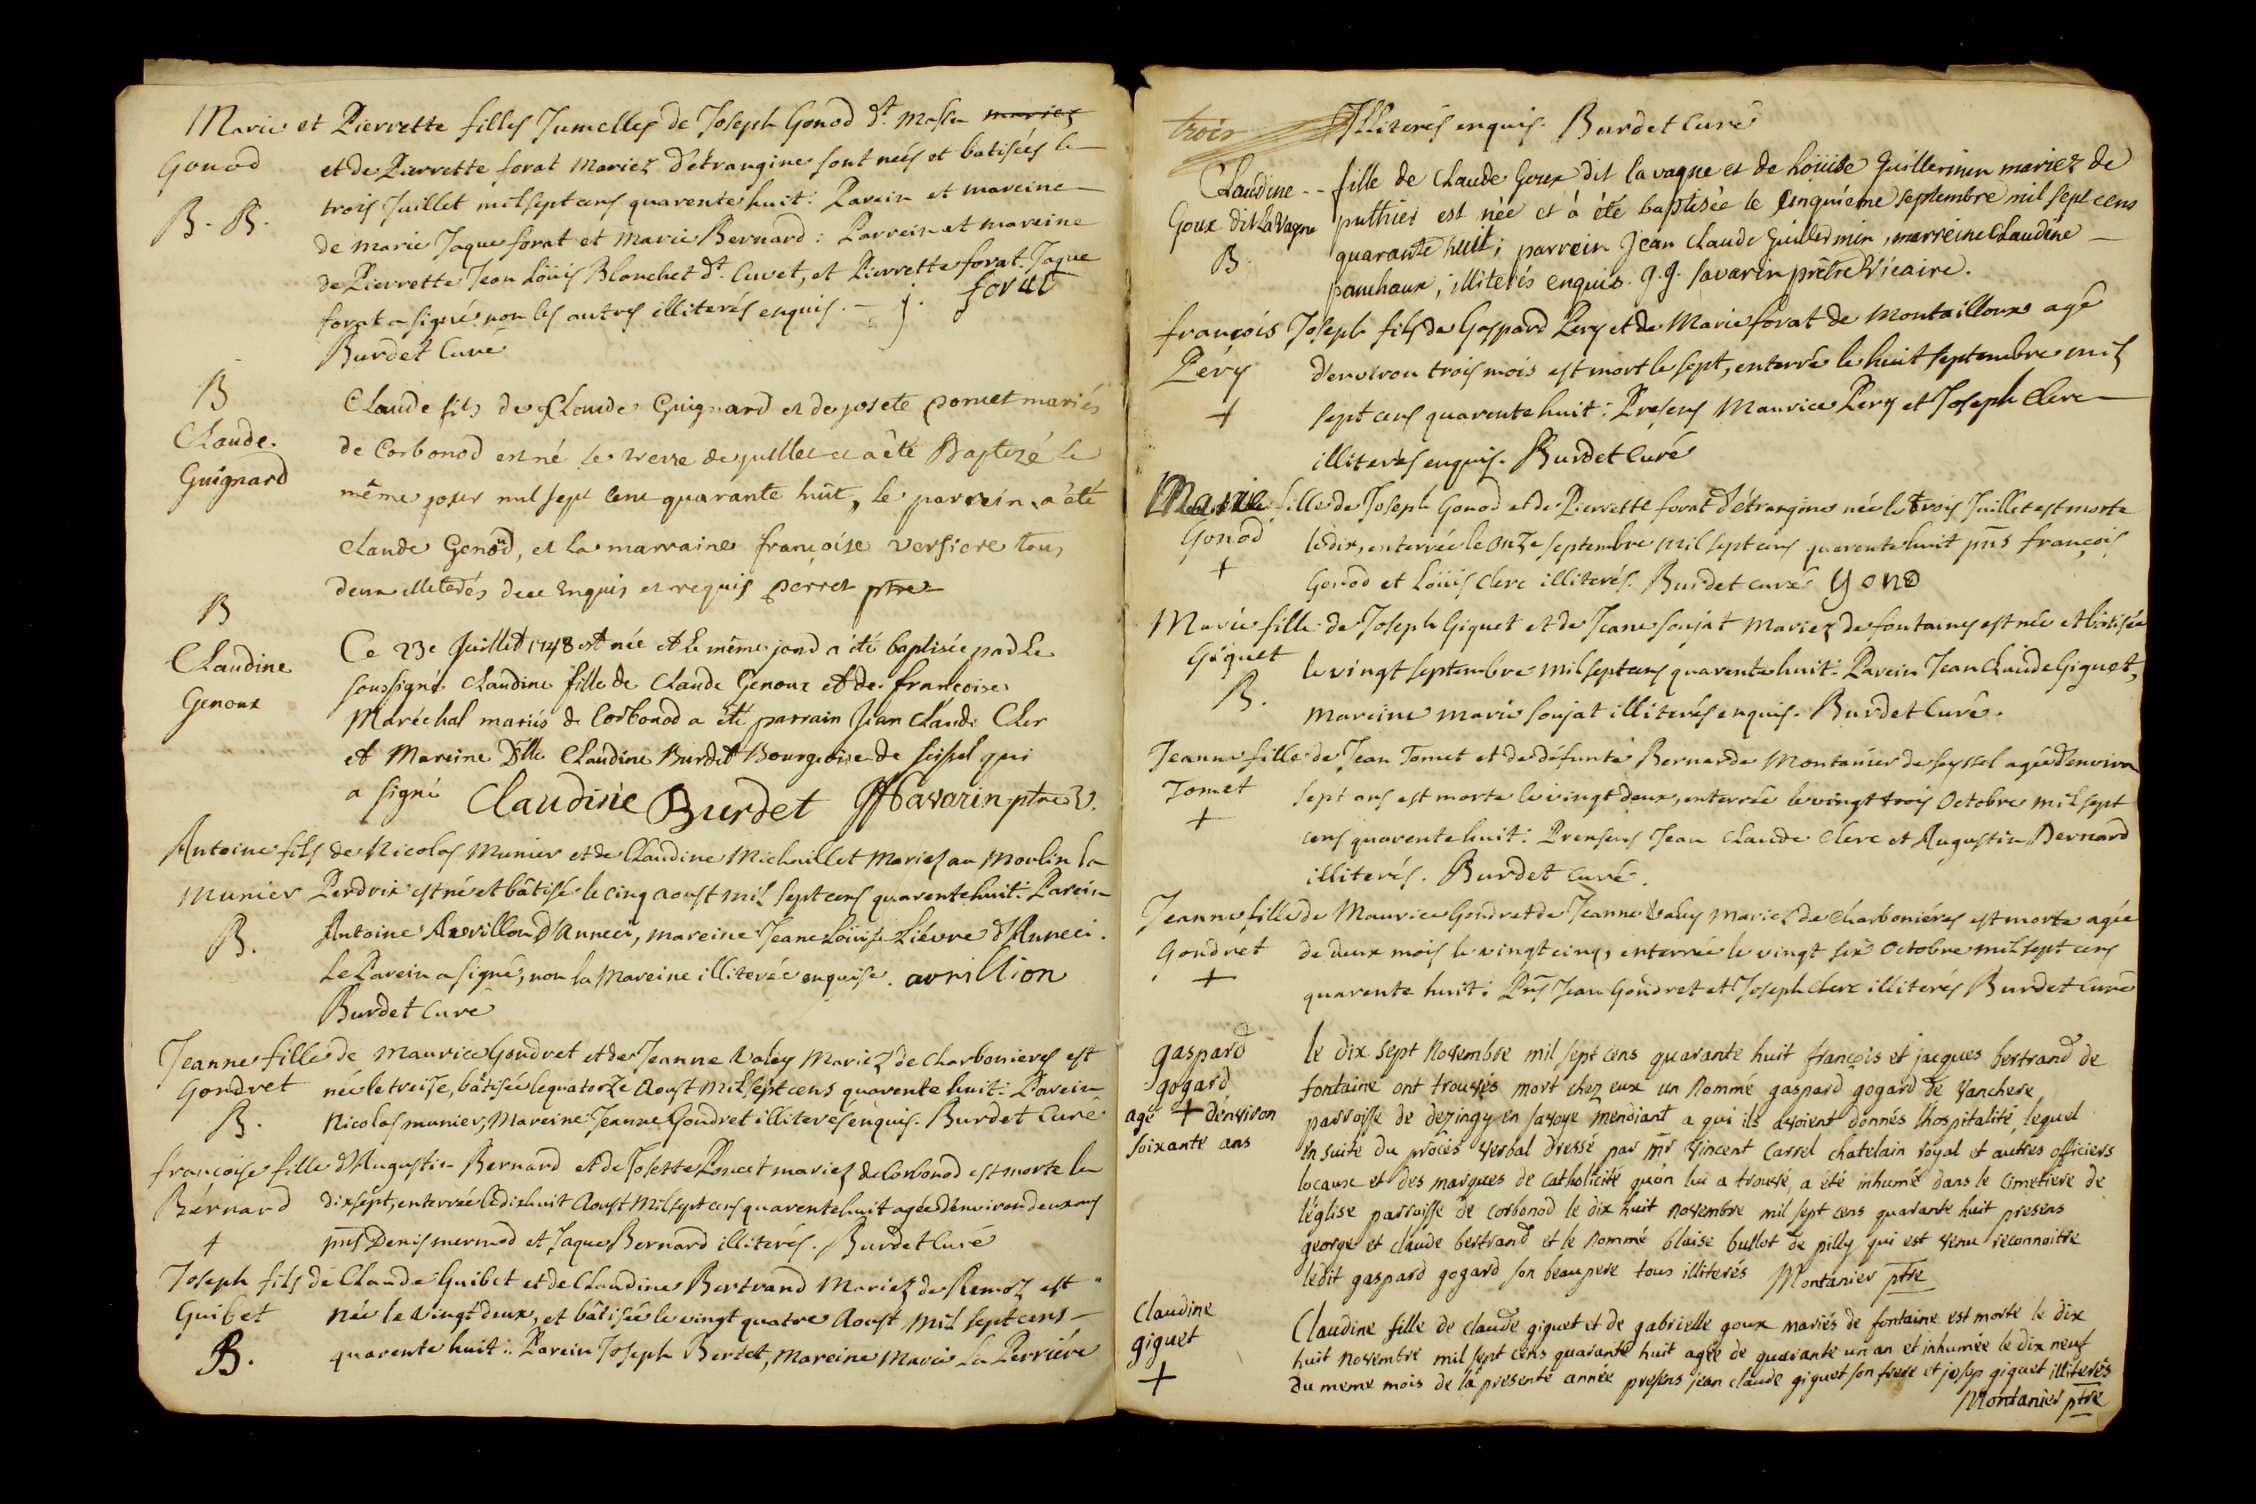 Marie et Pierrette filles Jumelles de Joseph Gonod dt. Massu mariez
Gonod et de Pierrette forat Mariez d'étrangine sont neés et batisées le
B. B. trois Juillet mil sept cens quarente huit: Parein et mareine
de marie Jaque forat et Marie Bernard: Parrein et mareine
de Pierrette Jean Loüis Blanchet dt. Cuvet, et Pierrette forat. Jaque
forat a signé, non les autres illiterés enquis. j. forat
Burdet Curé
B
Claude fils de Claude Guignard et de josete poncet mariés
Claude. de Corbonod est né le treze de juillet et a été Baptizé le
Guignard même jour mil sept cent quarante huit, le parrein a été
claude Genod, et la marraine françoise versiere tous
deux illeterés deue enquis et requis perret ptre
B
Claudine Ce 23e Juillet 1748 est née et le même jour a été baptisée par le
soussigné Claudine fille de Claude Genoux et de françoise
Genoux Maréchal mariés de Corbonod a été parrain Jean Claude Cler
et Mareine Dlle Claudine Burdet Bourgeoise de seissel qui
a signé Claudine Burdet JJ Savarin ptre V.
Antoine fils de Nicolas Munier et de Claudine Michaillet Mariez au Moulin la
Munier Perdrix est né et bâtisé le cinq aoust mil sept cens quarente huit: Parein
B. Antoine Avrillon d'Anneci, mareine Jeane Loüise Liévre d'Anneci.
Le Parein a signé, non la Mareine illiterée enquise. avrillion
Burdet Curé
Jeanne fille de Maurice Gondret et de Jeanne Valey Mariez de Charbonieres est
Gondret née le treise, bâtisée le quatorze Aoust Mil sept cens quarente huit: Parein
B. Nicolas munier, Mareine Jeanne Gondret illiterés enquis. Burdet Curé
françoise fille d'Augustin Bernard et de Josette Poncet mariez de Corbonod est morte le
Bérnard dixsept, enterrée le dixhuit Aoust Mil sept cens quarente huit agée d'environ deux ans
+ pns Denis mermod et Jaque Bernard illiterés. Burdet Curé
Joseph fils de Claude Guibet et de Claudine Bertrand Mariez de Remoz est
Guibet née le vingt deux, et bâtisée le vingt quatre Aoust Mil sept cens
B. quarente huit: Parein Joseph Bertet, Mareine Marie La Perriére
trois Illiterés enquis. Burdet Curé
Claudine -- fille de Claude Goux dit la vagne et de loüise Guillermin mariez de
Goux dit La Vagne puthier est née et à été baptisée le Cinquiéme septembre mil sept cens
B quarante huit; parrein Jean Claude Guillermin, marreine Claudine
panchaux, illiterés enquis. J. J. Savarin prêtre Vicaire.
françois Joseph fils de Gaspard Pery et de Marie forat de Montailloux agé
Péry d'environ trois mois est mort le sept, enterré le huit septembre mil
+ sept cens quarente huit: Presens Maurice Pery et Joseph Clerc
illiterés enquis. Burdet Curé
Marie fille de Joseph Gonod et de Pierrette forat d'étrangine née le trois Juillet est morte
Gonod le dix, enterrée le onze septembre mil sept cens quarente huit pns françois
+ Gonod et Loüis Clerc illiterés. Burdet curé gono
Marie fille de Joseph Giguet et de Jeane soujat Mariez de fontaines est née et bâtisée
Giguet le vingt septembre mil sept cens quarente huit: Parein Jean Claude Giguet,
B. Mareine marie soujat illiterés enquis. Burdet Curé.
Jeanne fille de Jean Tomet et de défunte Bernarde Montanier de seyssel agée d'environ
Tomet sept ans est morte le vingt deux, enterrée le vingt trois Octobre mil sept
+ cens quarente huit: Presens Jean Claude Clerc et Augustin Bernard
illiterés. Burdet Curé.
Jeanne fille de Maurice Gondret de Jeanne Valey Mariez de Charboniéres est morte agée
Gondret de deux mois le vingt cinq, enterrée le vingt six Octobre mil sept cens
+ quarente huit: Pns Jean Gondret et Joseph Clerc illiterés Burdet Curé
gaspard le dix sept novembre mil sept cens quarante huit françois et jacques bertrand de
gogard fontaine ont trouvés mort chez eux un nommé gaspard gogard de vanchere,
agé + d'environ parroisse de dezingy en savoye mendiant a qui ils avoient donnés lhospitalité, lequel
soixante ans en suite du procés verbal dressé par mr vincent carrel chatelain royal et autres officiers
locaux et des marques de catholicité qu'on lui a trouvé, a été inhumé dans le cimetiere de
l'église parroisse de corbonod le dix huit novembre mil sept cens quarante huit presens
george et claude bertrand et le nommé blaise bullot de pilly qui est venu reconnoitre
ledit gaspard gogard son beaupere tous illiterés Montanier ptre
Claudine Claudine fille de claude giguet et de gabrielle goux mariés de fontaine est morte le dix
giguet huit novembre mil sept cens quarante huit agée de quarante un an et inhumée le dix neuf
+ du meme mois de la presente année presens jean claude giguet son frere et josep giguet illiterés
Montanier ptre